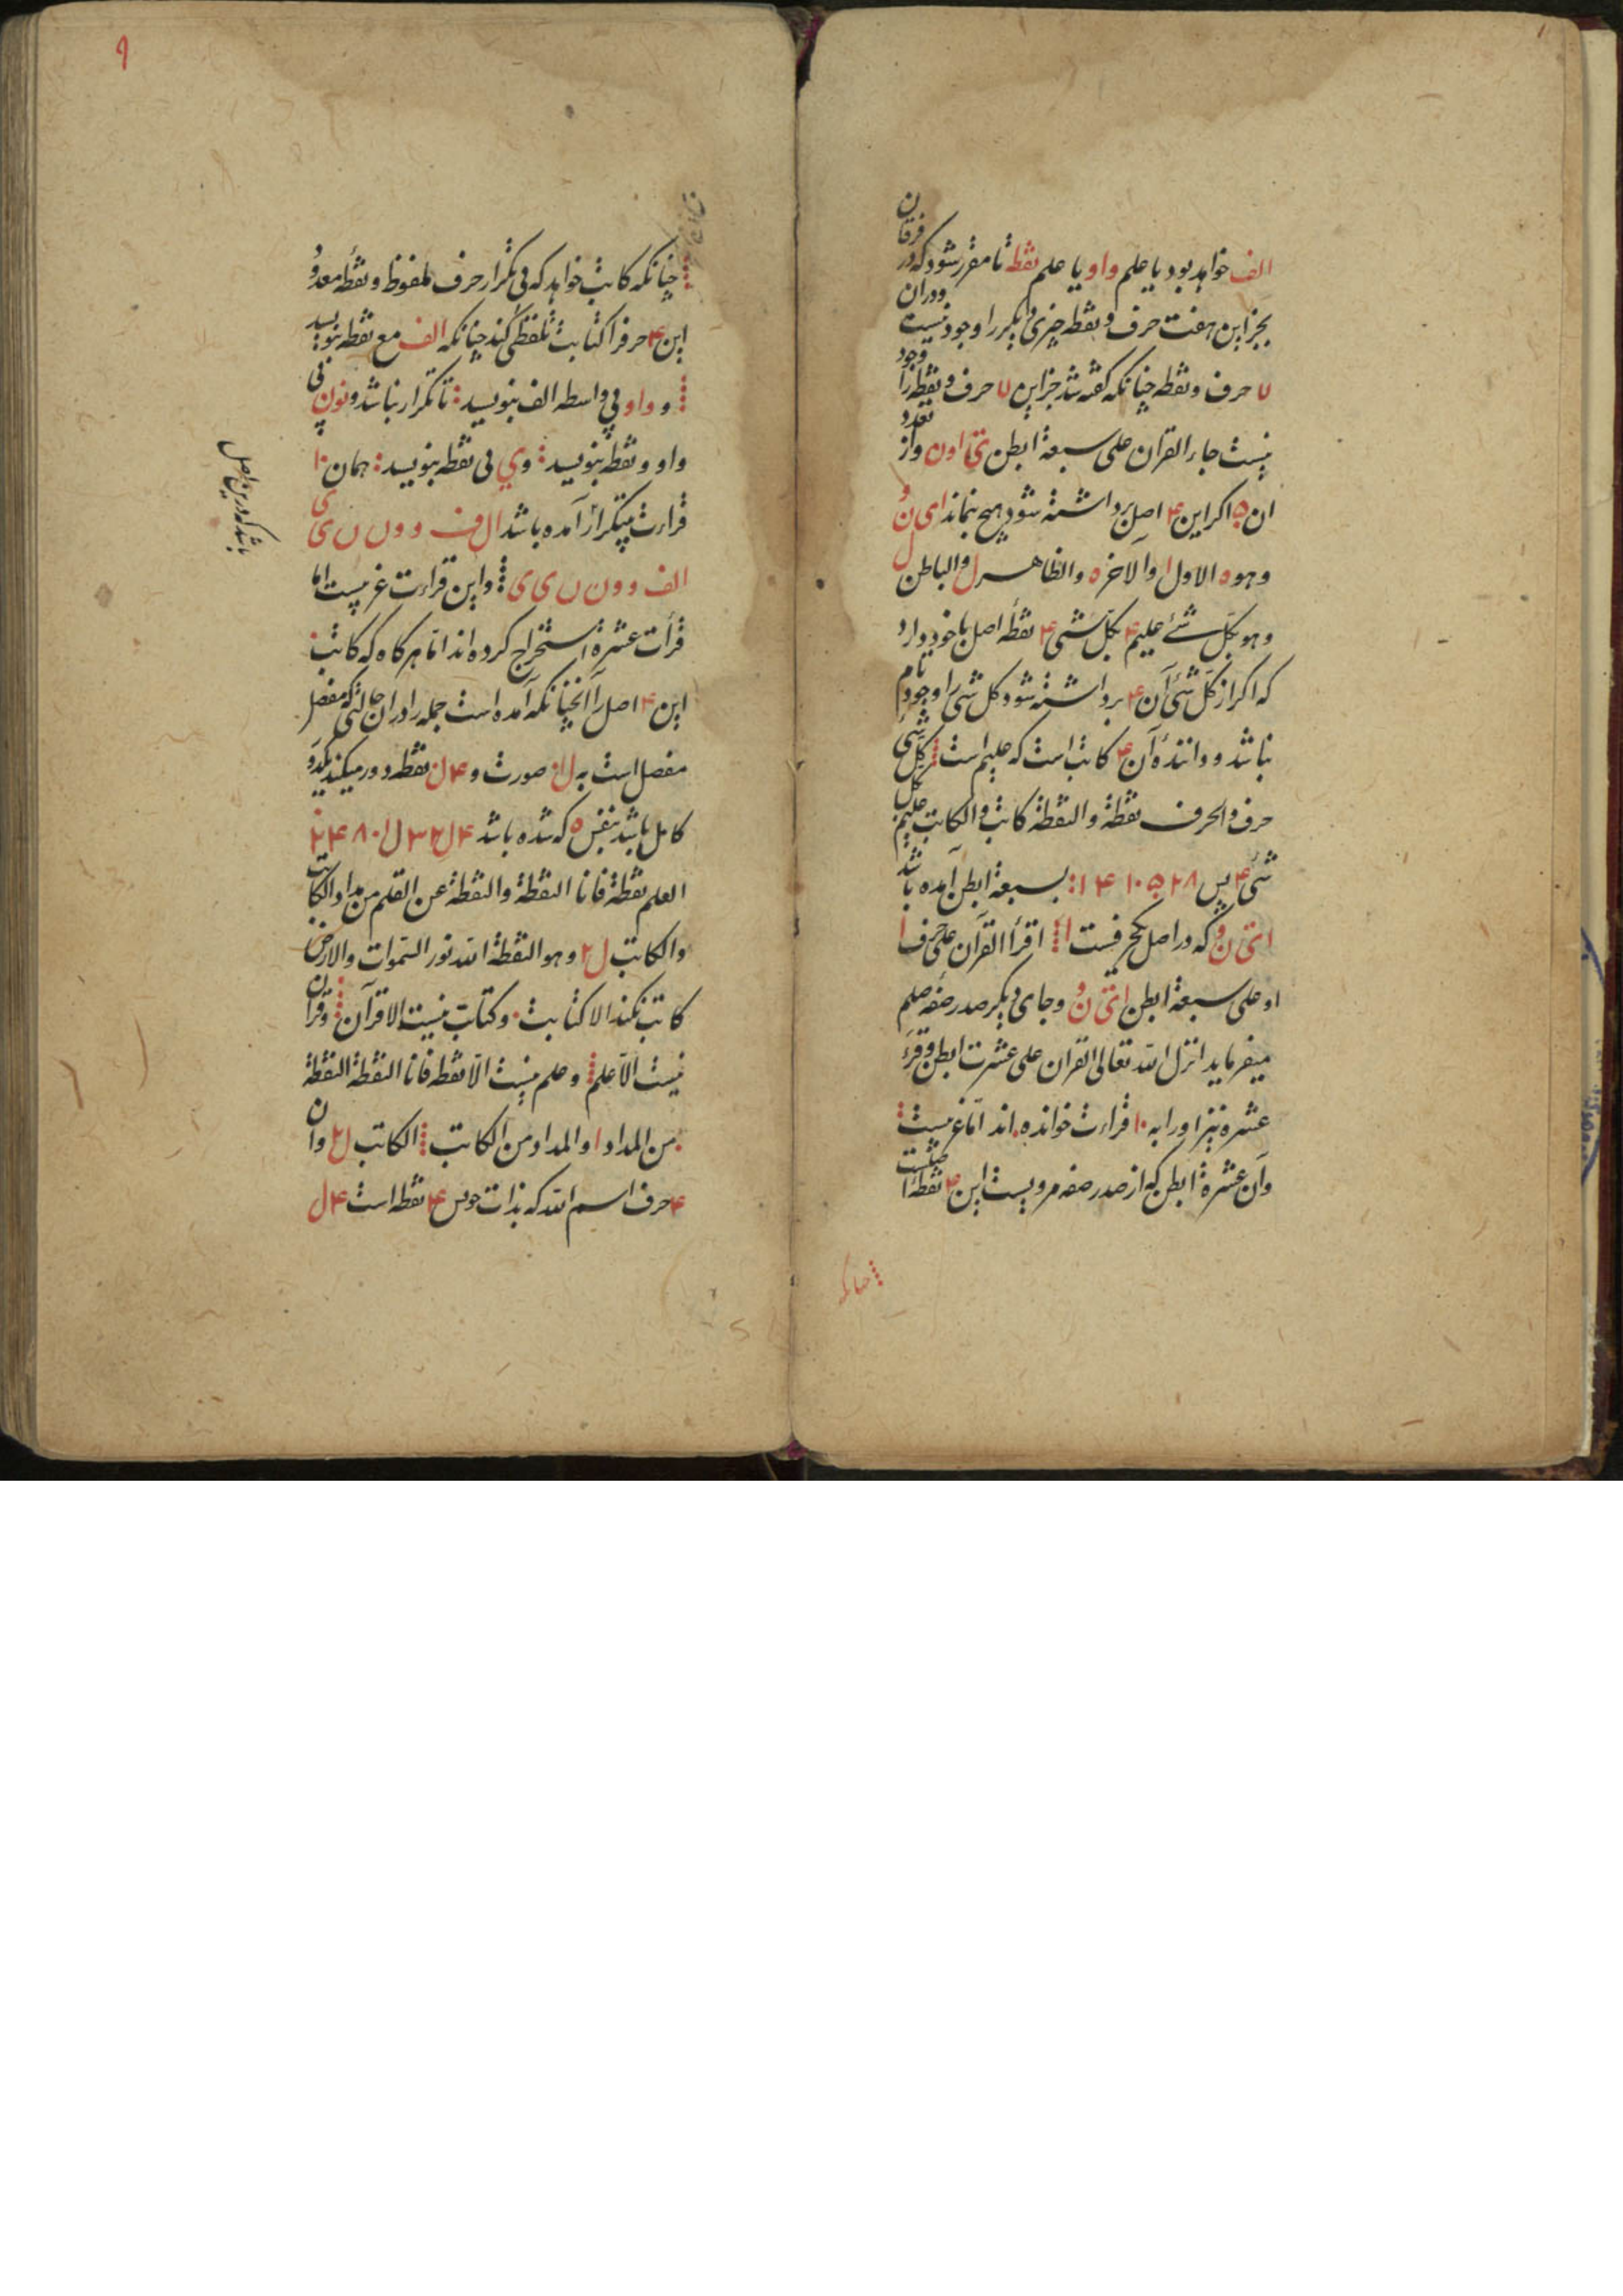 الف خواهد بود یا علم واو یا علم نقطه تا مقرر شود که در فرقان
بجز این هفت حرف و نقطه چیزی دیگر را وجود نیست و در ان
۷ حرف و نقطه چنانکه گفته شد جز این ۷ حرف و نقطه را وجود
نیست جاء القران علی سبعة ابطن اون واز تعدد
ان ۵ اگر این ۴ اصل برداشته شود هیچ نماند ای ن و
وهو ه الاول ا والآخر ه والظاهر ل والباطن ل
وهو بکل شئ علیم ۴ بکل شی ۴ نقطه اصل با خود دارد
که اگر از کل شئ آن ۴ برداشته شود کل شی را وجود نام
نباشد و دانندهٔ آن ۴ کاتب است که علیم است کل شئ
حرف والحرف نقطة والنقطة کاتب والکاتب علیم بکل
شئ ۴ پس ۲۸ ۵ ۱۰ ۴ ۱ سبعة ابطن آمده باشد
که در اصل یکحرفست ا اقرأ القرآن علی حرف ا
او علی سبعة ابطن و جای دیگر صدر صفه صلم
میفرماید انزل الله تعالی القران علی عشرت ابطن و قرء
عشره نیز او را به ۱۰ قراءت خوانده اند اما غیر
وآن عشرة ابطن که از صدر صفه مرویست این ۴ نقطه
چنانکه
چنانکه کاتب خواهد که بی تکرار حرف ملفوظ و نقطه معدود
این ۴ حرفرا کتابت تلفظی کند چنانکه الف مع نقطه بنویسد
و واو بی واسطه الف بنویسد تا تکرار نباشد ونون بی
واو و نقطه بنویسد و ی بی نقطه بنویسد همان ۱۰
قراءت بتکرار آمده باشد ال ف و و ں ں ی ی
الف و و ن ں ی ی و این قراءت اما
قرأت عشرة استخراج کرده اند اما هرگاه که کاتب
این ۴ اصل را آنچنانکه آمده است جمله را در آن حالتی که مفصل
مفصل است به صورت و نقطه دور میکند
کامل باشد بنفس ه که شده باشد
العلم نقطة فانا النقطة والنقطة عن القلم من مداد الکاتب
والکاتب وهو النقطة الله نور السموات والارض
کاتب نکند الا کتابت و کتابت نیست الا قرآن و قران
نیست الا علم و علم نیست الا نقطه فانا النقطة النقطة
من المداد والمداد من الکاتب الکاتب وان
۴ حرف اسم الله که بذات ۴ نقطه است
باشد که درین اصل